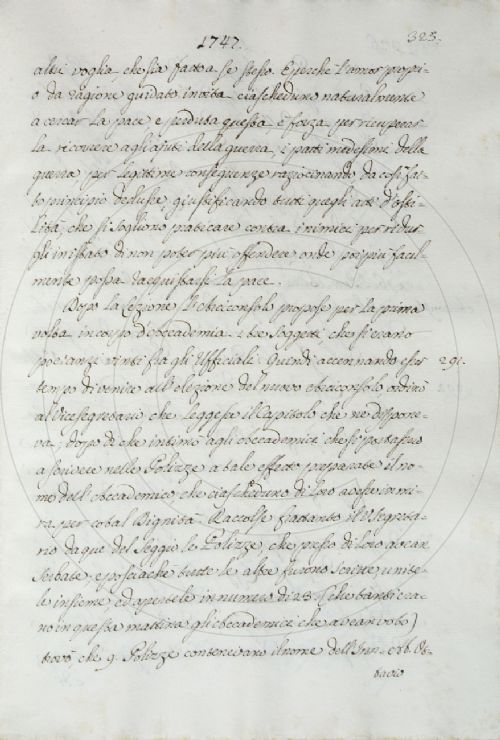 1747.
323.
altri voglia, che sia fatto a se stesso. E perchè l'amor propri-
o da ragione guidato invita ciascheduno naturalmente
a cercar la pace e perduta questa, è forza per ricuperar
la ricorrere agli ajuti della guerra, i patti medesimi della
guerra per legittime conseguenze raziocinando da così fat-
to principio dedusse, giustificando tutti quegli atti d'osti-
lità, che si sogliono praticare contra i nimici per ridur
gli in istato di non poter più offendere onde poi più facil-
mente possa racquistarsi la pace.
Dopo la Lezione l'Arciconsolo propose per la prima
volta in corpo d'Accademia i tre soggetti, che si erano
poc'anzi vinti fra gli Uffiziali. Quindi accennando esser
291.
tempo di venire all'elezione del nuovo Arciconsolo ordinò
al Vicesegretario che leggesse il Capitolo che ne dispone-
va, dopo di che intimò agli Accademici che si portassero
a scrivere nelle Polizze a tale effetto preparate il no-
me dell'Accademico che ciascheduno di loro avesse in mi-
ra per cotal Dignità. Raccolse frattanto il V. Segreta-
rio da que' del Seggio le Polizze, che presso di loro avean
serbate, e posciachè tutte le altre furono scritte, unite-
le insieme, ed apertele in numero di 23. (che tanti era-
no in questa mattina gli Accademici che avean voto)
trovò che 9. Polizze contenevano il nome dell' Ab. Ot-
tavio